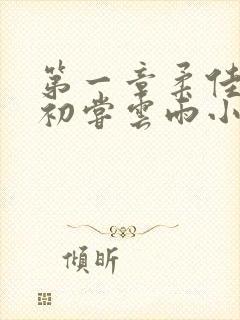 第一章柔佳
初嘗雲雨小
傾昕